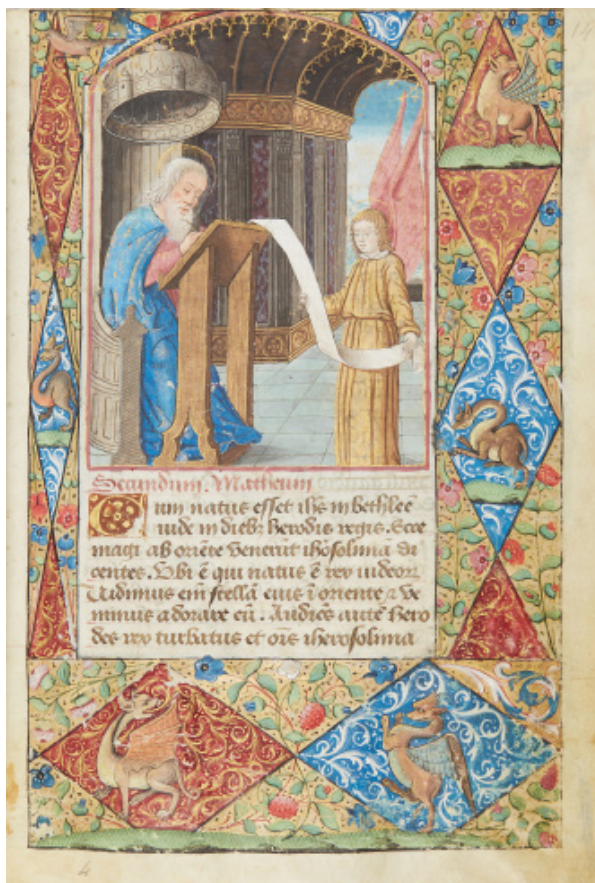 14
Secundum Matheum
Cum natus esset ihs in bethleē
iude in dieb' herodis regis. Ecce
magi ab oriēte venerūt ihosolimā di
centes. Vbi ē qui natus ē rex iudeoꝝ
Vidimus eīn stellā eius ī oriente ⁊ ve
nimus adorare eū. Audiēs autē hero
des rex turbatus et oīs iherosolima
4